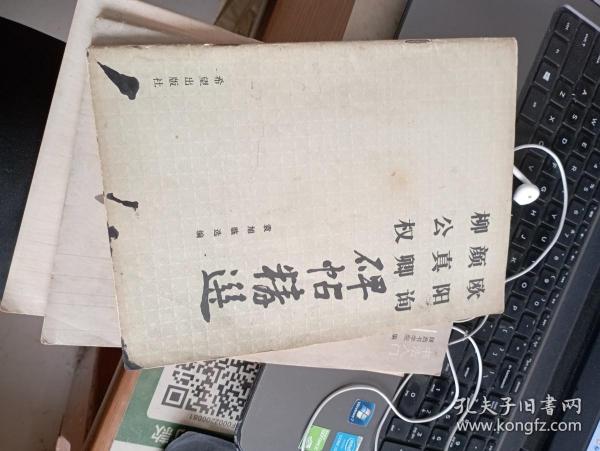 欧阳询
颜真卿
柳公权
碑帖精選
袁旭临选编
希望出版社
入门
编
款
孔夫子旧书网
www.kongfz.com